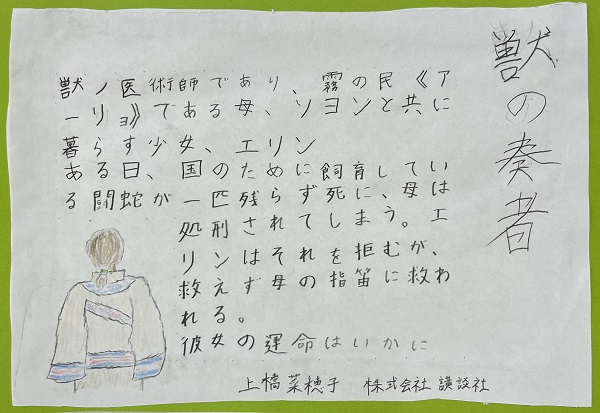 獣の奏者
獣ノ医術師であり、霧の民《ア
ーリョ》である母、ソヨンと共に
暮らす少女、エリン
ある日、国のために飼育してい
る闘蛇が一匹残らず死に、母は
処刑されてしまう。エ
リンはそれを拒むが、
救えず母の指笛に救わ
れる。
彼女の運命はいかに
上橋菜穂子 株式会社 講談社